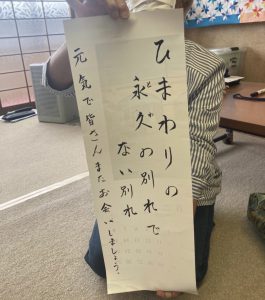 ひまわりの
永久の別れで
ない別れ
元気で皆さんまたお会いしましょう。